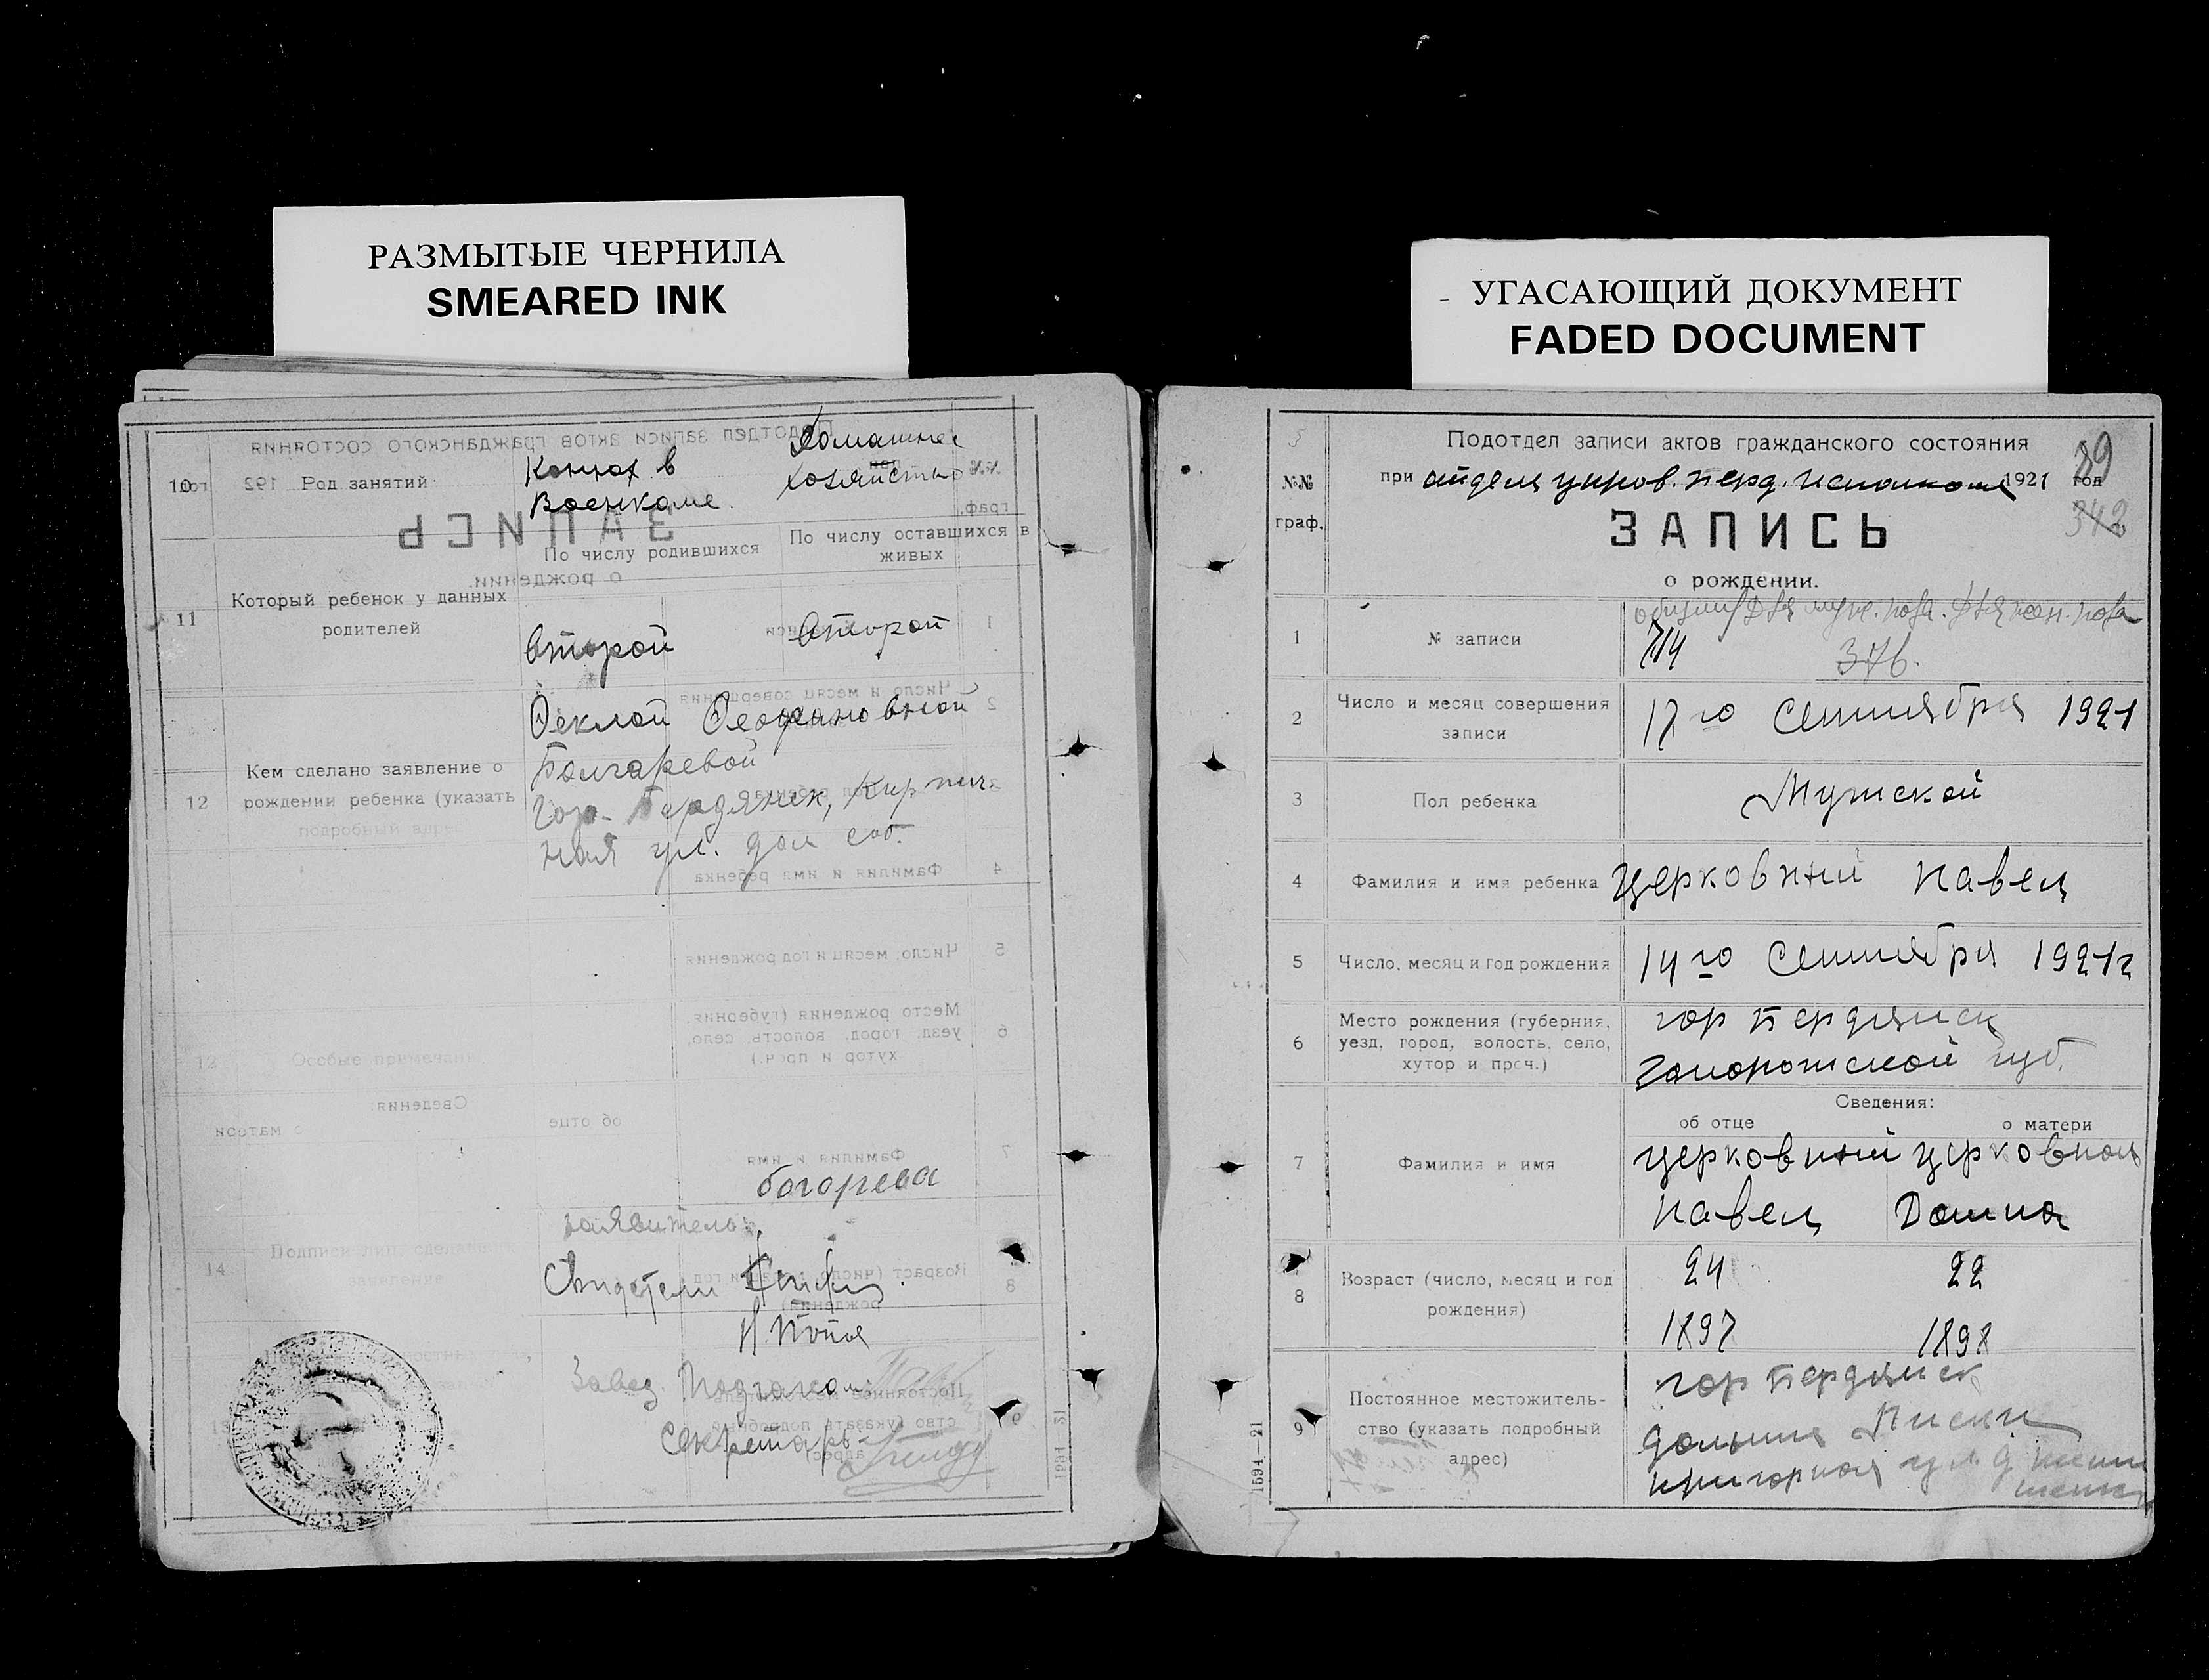 РАЗМЫТЫЕ ЧЕРНИЛА
SMEARED INK
10 Род занятий
Конюх в Военкоме.
Домашнее хозяйство
По числу родившихся
По числу оставшихся в живых
11 Который ребенок у данных родителей
второй
второй
12 Кем сделано заявление о рождении ребенка (указать подробный адрес
Феклой Феофановной
Болгаревой
Гор. Бердянск, Кирпич-
ная ул. дом соб.
Особые примечания
14 Подписи лиц, сделавш
заявление
богорева
заявитель
Свидетели
Н. Попов
Завед. Подзагсом
Секретарь
УГАСАЮЩИЙ ДОКУМЕНТ
FADED DOCUMENT
Подотдел записи актов гражданского состояния
№№ граф.
при отделе управ. Берд. Исполкома 1921 год
89
342
ЗАПИСЬ
о рождении.
1 № записи
общий Для муж. пола. Для жен. пола
714 376.
2 Число и месяц совершения записи
17го Сентября 1921
3 Пол ребенка
Мужской
4 Фамилия и имя ребенка
Церковный Павел
5 Число, месяц и год рождения
14го Сентября 1921г
6 Место рождения (губерния, уезд, город, волость, село, хутор и проч.)
гор Бердянск
Запорожской губ.
Сведения:
об отце о матери
7 Фамилия и имя
Церковный Церковная
Павел Домна
8 Возраст (число, месяц и год рождения)
24 22
1897 1898
9 Постоянное местожительство (указать подробный адрес)
гор Бердянск
Лиски
пригорная ул. д
1594—21